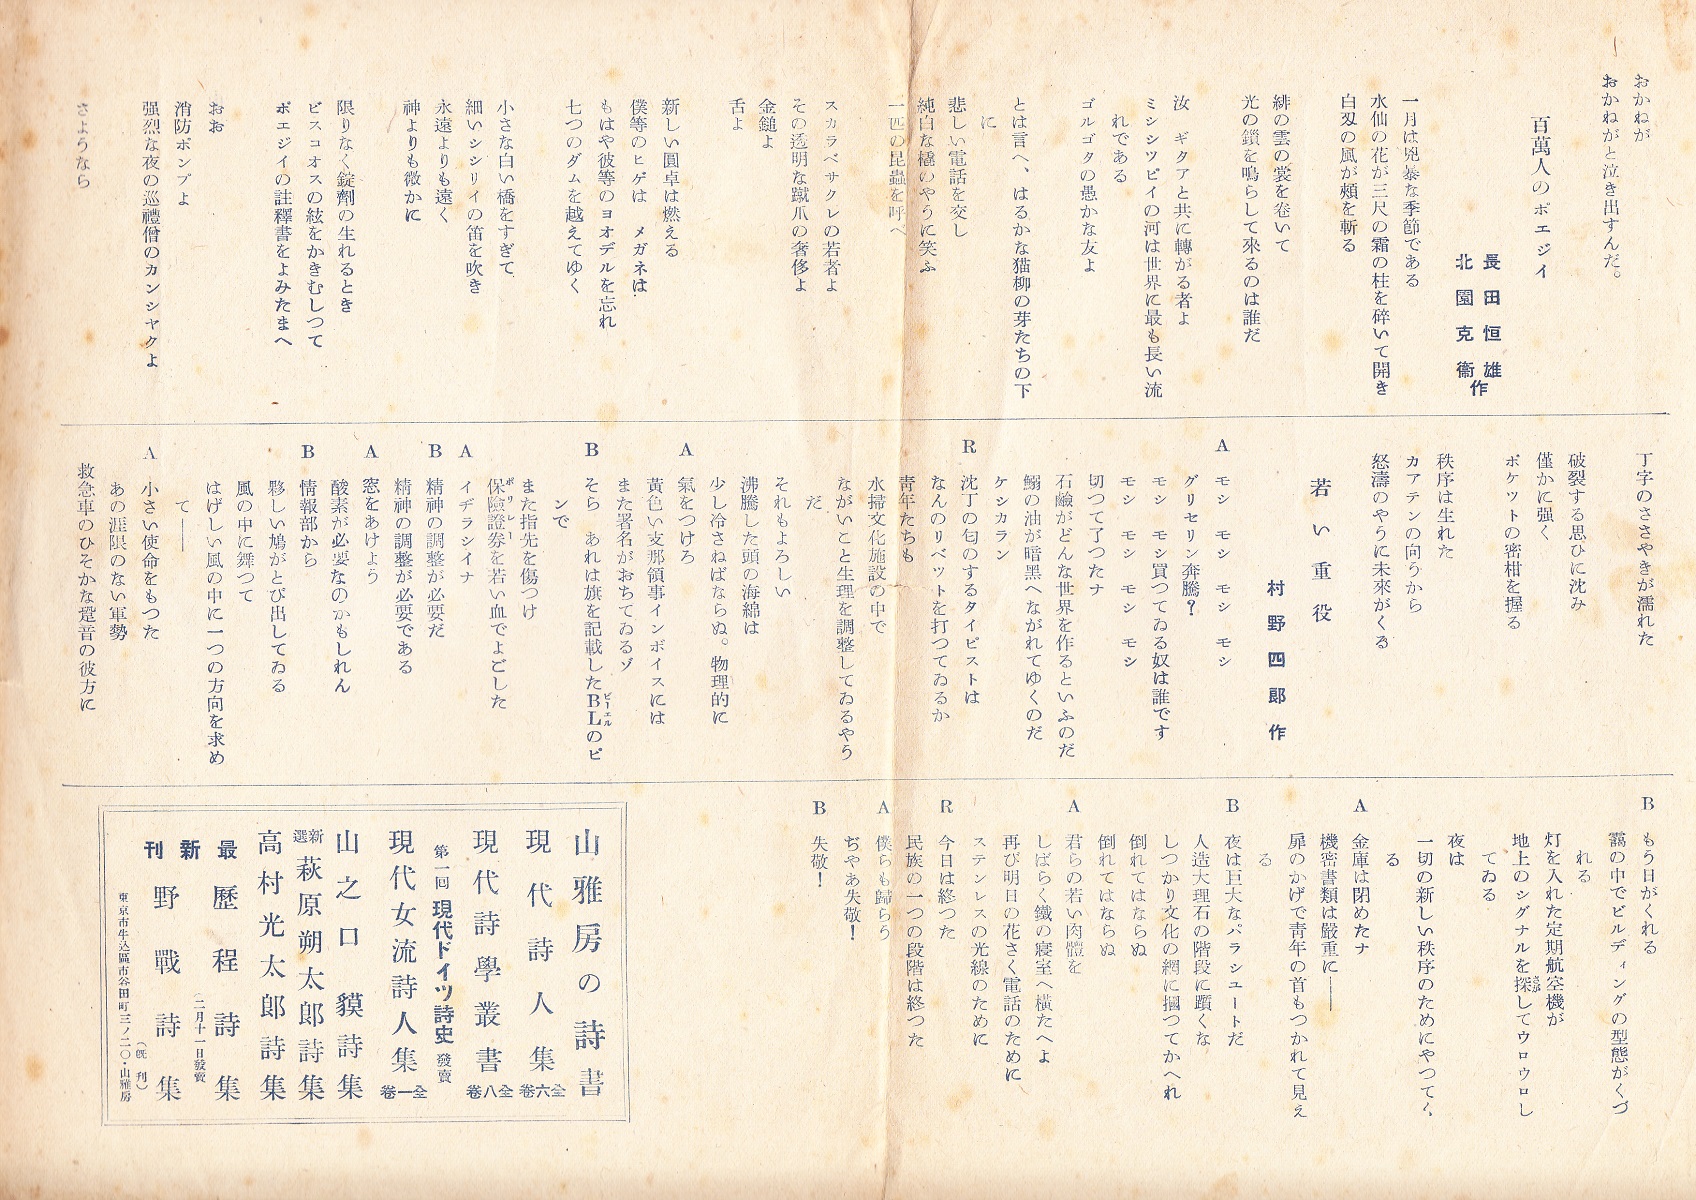 おかねが
おかねがと泣き出すんだ。
百萬人のポエジイ
長田恒雄
北園克衞作
一月は兇暴な季節である
水仙の花が三尺の霜の柱を碎いて開き
白刄の風が頰を斬る
緋の雲の裳を卷いて
光の鎖を鳴らして來るのは誰だ
汝 ギクアと共に轉がる者よ
ミシシツピイの河は世界に最も長い流
れである
ゴルゴタの愚かな友よ
とは言へ、はるかな猫柳の芽たちの下
に
悲しい電話を交し
純白な橇のやうに笑ふ
一匹の昆蟲を呼べ
スカラベサクレの若者よ
その透明な蹴爪の奢侈よ
金鎚よ
舌よ
新しい圓卓は燃える
僕等のヒゲは メガネは
もはや彼等のヨオデルを忘れ
七つのダムを越えてゆく
小さな白い橋をすぎて
細いシシリイの笛を吹き
永遠よりも遠く
神よりも微かに
限りなく錠劑の生れるとき
ビスコオスの絃をかきむしつて
ポエジイの註釋書をよみたまへ
おお
消防ポンプよ
强烈な夜の巡禮僧のカンシヤクよ
さようなら
丁字のささやきが濡れた
破裂する思ひに沈み
僅かに强く
ポケツトの密柑を握る
秩序は生れた
カアテンの向うから
怒濤のやうに未來がくる
若い重役
村野四郎作
A モシ モシ モシ モシ
グリセリン奔騰?
モシ モシ買つてゐる奴は誰です
モシ モシ モシ モシ
切つて了つたナ
石鹼がどんな世界を作るといふのだ
鰯の油が暗黑へながれてゆくのだ
ケシカラン
R 沈丁の匂のするタイピストは
なんのリベツトを打つてゐるか
靑年たちも
水掃文化施設の中で
ながいこと生理を調整してゐるやう
だ
それもよろしい
沸騰した頭の海綿は
少し冷さねばならぬ。物理的に
A 氣をつけろ
黃色い支那領事インボイスには
また署名がおちてゐるゾ
B そら あれは旗を記載したBLのピ
ビーエル
ンで
また指先を傷つけ
保險證券を若い血でよごした
ポリシー
A イヂラシイナ
B 精神の調整が必要だ
精神の調整が必要である
A 窓をあけよう
酸素が必要なのかもしれん
B 情報部から
夥しい鳩がとび出してゐる
風の中に舞つて
はげしい風の中に一つの方向を求め
て――
A 小さい使命をもつた
あの涯限のない軍勢
救急車のひそかな跫音の彼方に
B もう日がくれる
靄の中でビルディングの型態がくづ
れる
灯を入れた定期航空機が
地上のシグナルを探してウロウロし
さが
てゐる
夜は
一切の新しい秩序のためにやつてく
る
A 金庫は閉めたナ
機密書類は嚴重に――
扉のかげで靑年の首もつかれて見え
る
B 夜は巨大なパラシユートだ
人造大理石の階段に躓くな
しつかり文化の綱に摑つてかへれ
倒れてはならぬ
倒れてはならぬ
A 君らの若い肉體を
しばらく鐵の寢室へ橫たへよ
再び明日の花さく電話のために
ステンレスの光線のために
R 今日は終つた
民族の一つの段階は終つた
A 僕らも歸らう
ぢやあ失敬!
B 失敬!
山雅房の詩書
現代詩人集 全六卷
現代詩學叢書 全八卷
第一回 現代ドイツ詩史 發賣
現代女流詩人集 全一卷
山之口貘詩集
新選 萩原朔太郎詩集
高村光太郎詩集
最新刊
歷程詩集
二月十一日發賣
野戰詩集
(既刊)
東京市牛込區市谷田町三ノ二〇・山雅房